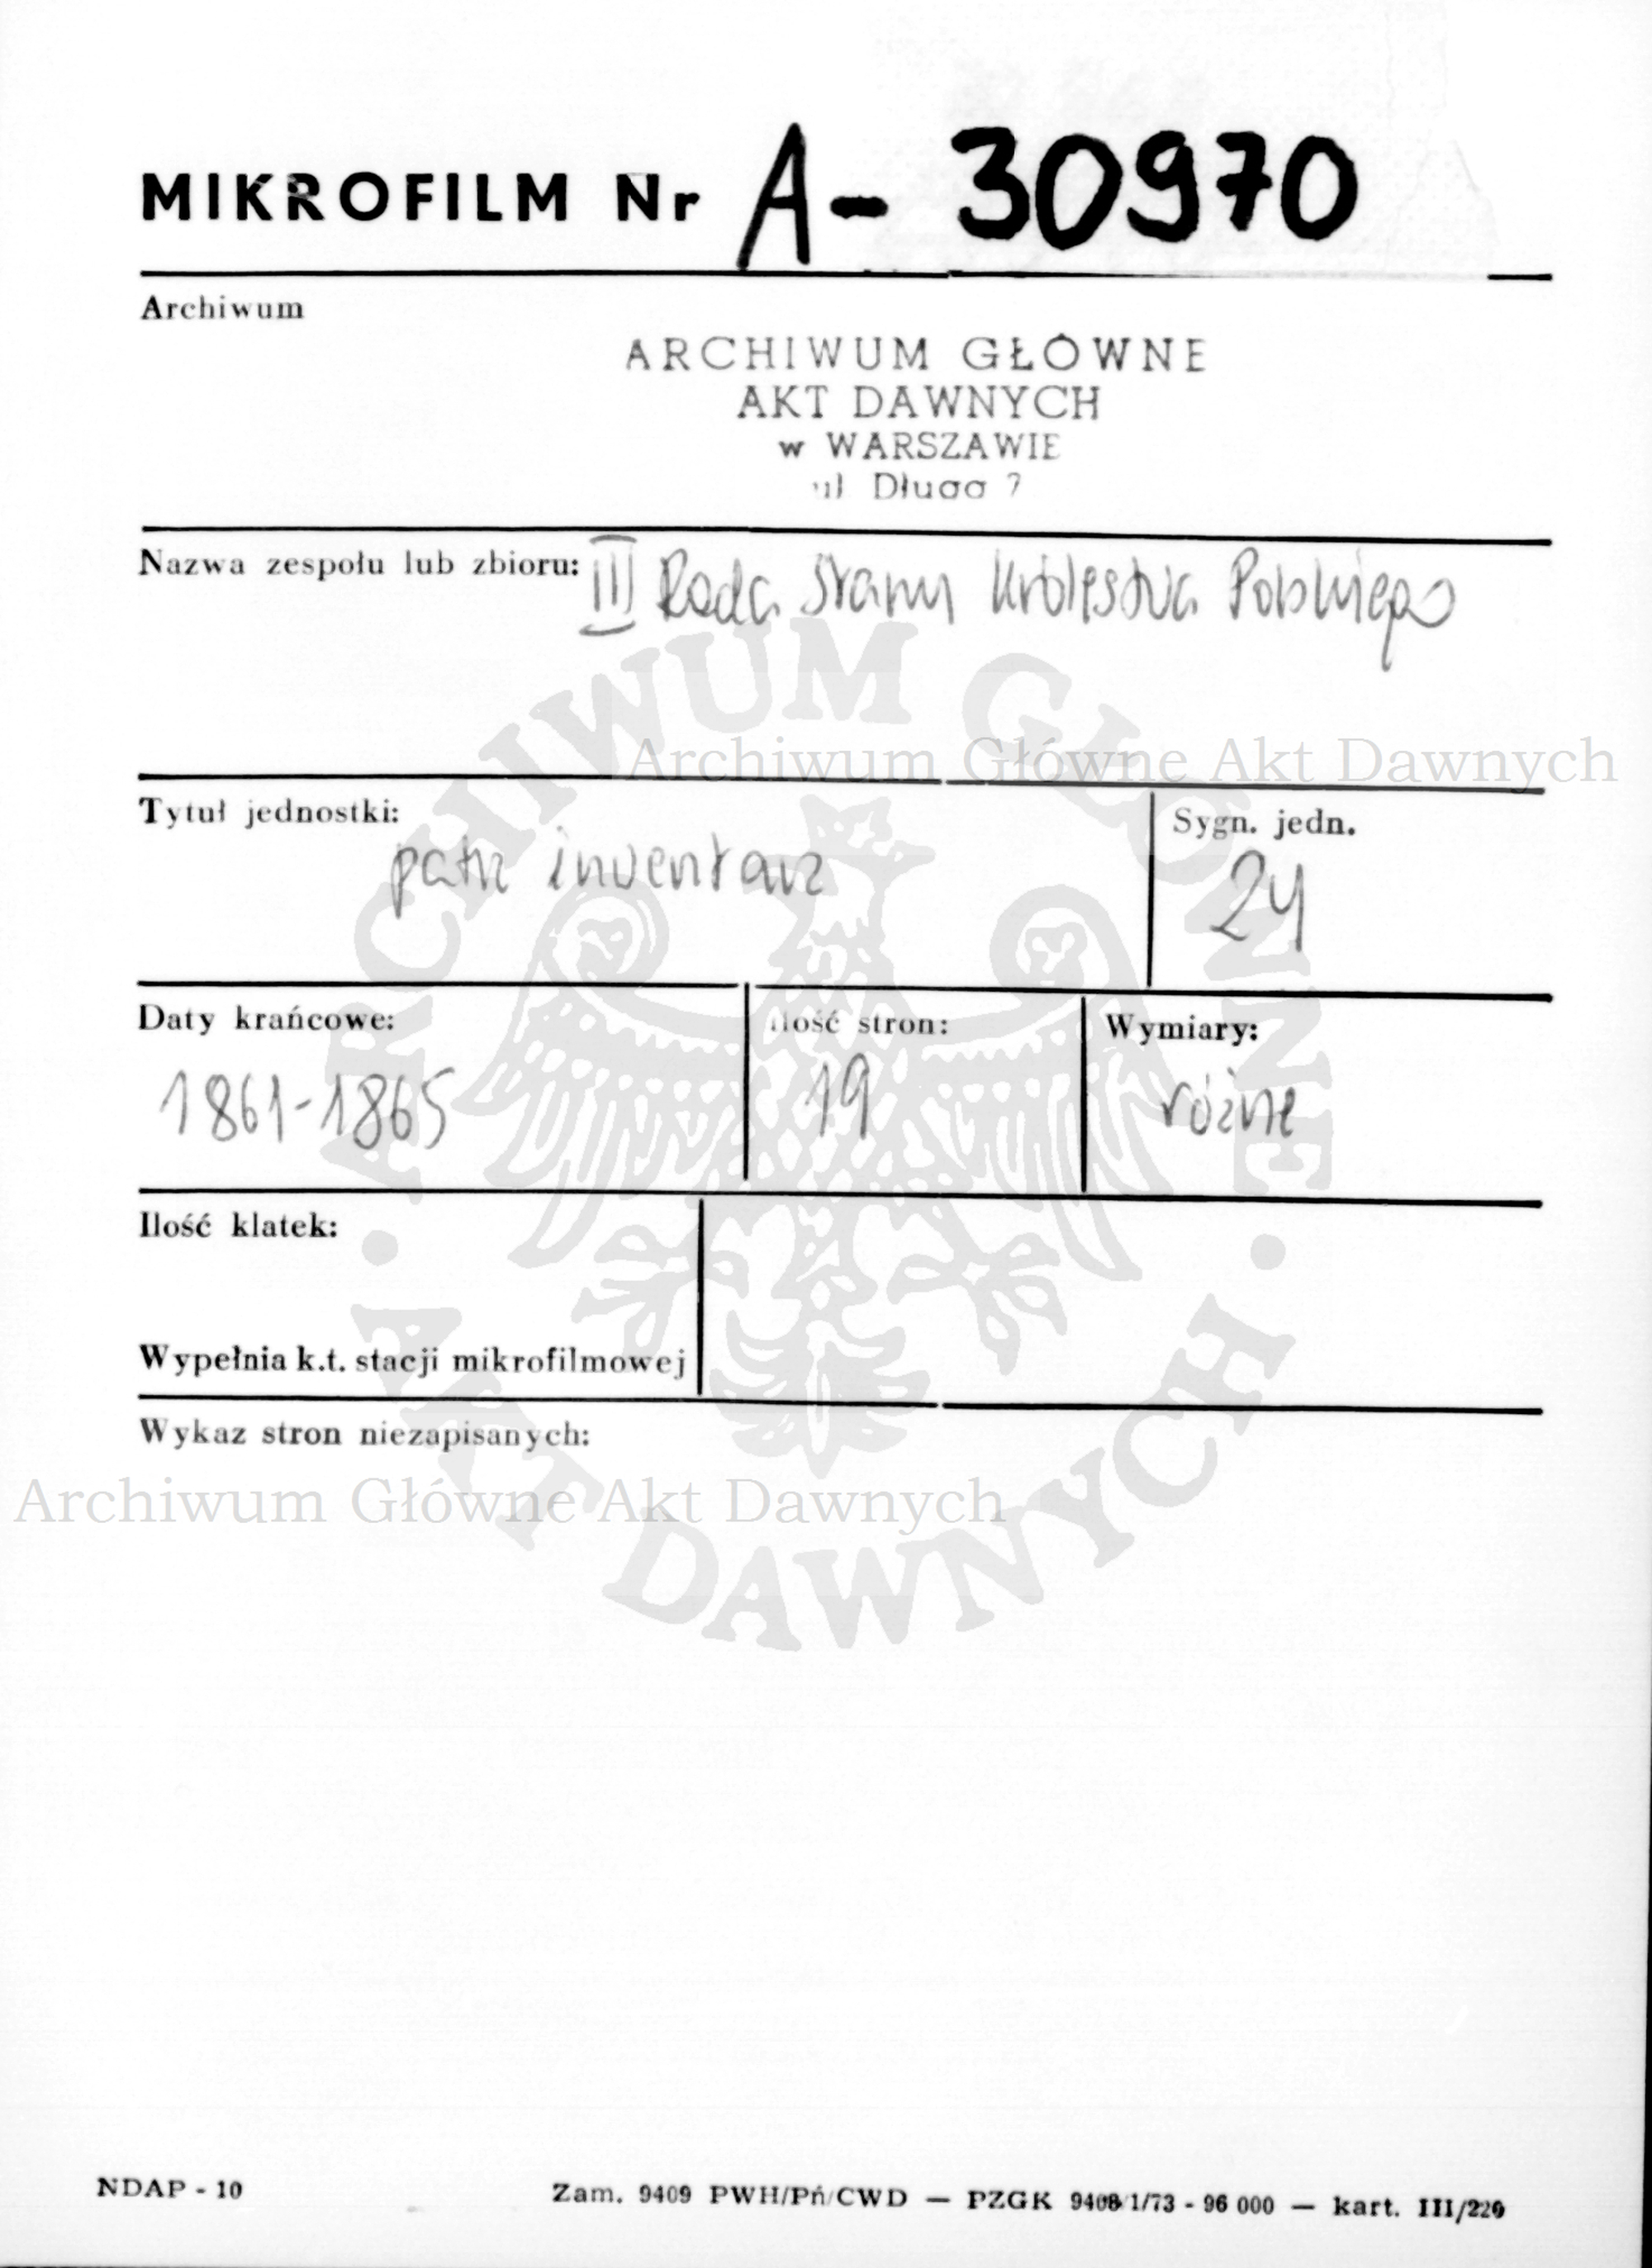 MIKROFILM Nr A- 30970
Archiwum
ARCHIWUM GŁÓWNE
AKT DAWNYCH
w WARSZAWIE
ul Długa 7
Nazwa zespołu lub zbioru: III Rada Stanu Królestwa Polskiego
Archiwum Główne Akt Dawnych
Tytuł jednostki:
patrz inwentarz
Sygn. jedn.
24
Daty krańcowe:
1861-1865
Ilość stron:
19
Wymiary:
różne
Ilość klatek:
Wypełnia k.t. stacji mikrofilmowej
Wykaz stron niezapisanych:
Archiwum Główne Akt Dawnych
ARCHIWUM GŁÓWNE · AKT DAWNYCH ·
NDAP - 10
Zam. 9409 PWH/Pń/CWD — PZGK 9408/1/73 - 96 000 — kart. III/220